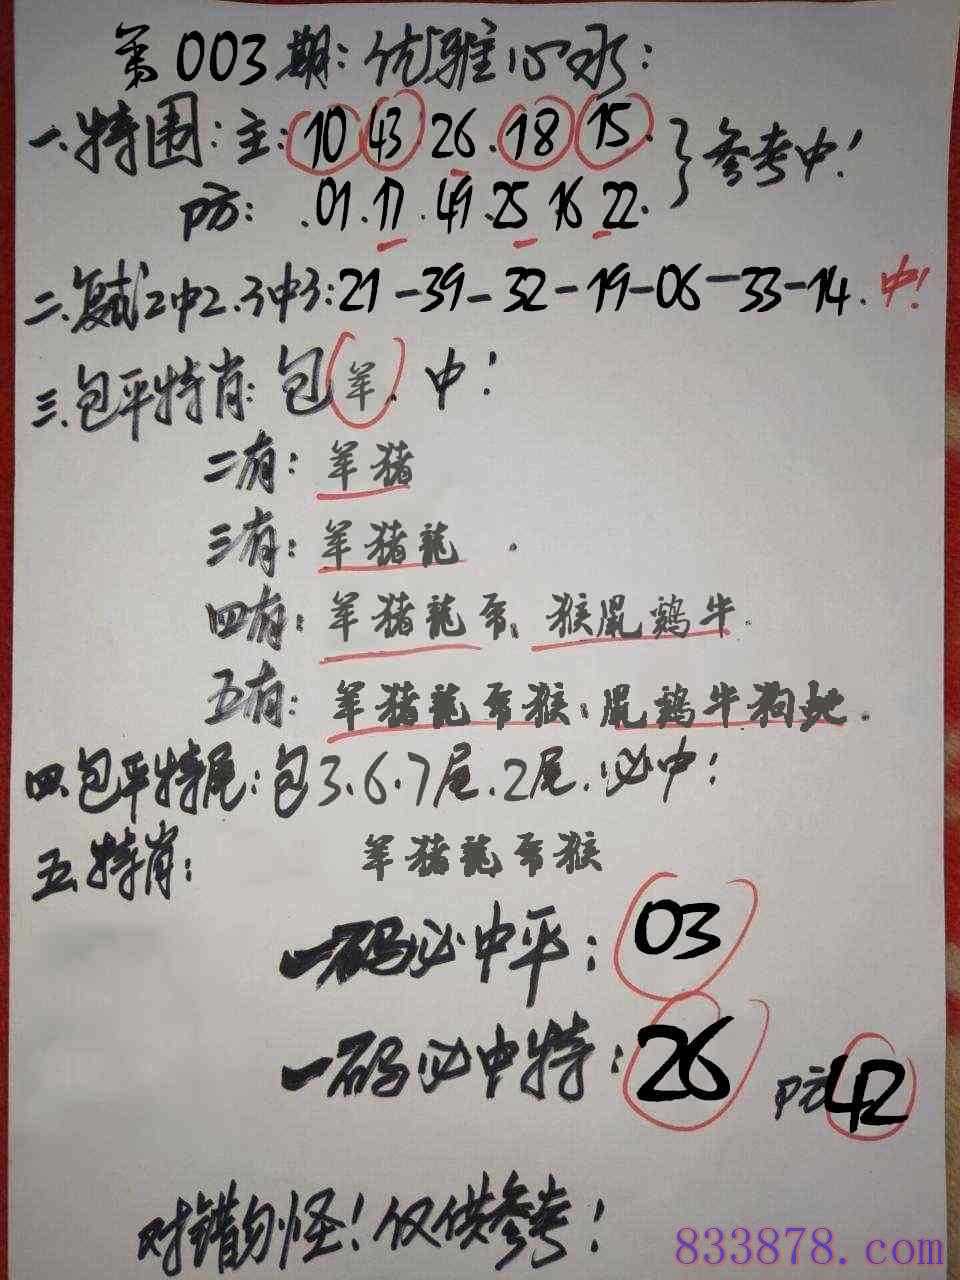 第003期:优雅心水:
一.特围:主:10 43.26.18.15.}参考中!
防:.01.17.49.25 16 22.
二.复试2中2.3中3:21-39-32-19-06-33-14.中!
三.包平特肖:包羊.中!
二有:羊猪
三有:羊猪龍.
四有:羊猪龍馬.猴鼠鷄牛.
五有:羊猪龍馬猴.鼠鷄牛狗蛇.
四.包平特尾:包3.6.7尾.2尾.必中!
五.特肖:羊猪龍馬猴
一码必中平:03
一码必中特:26 防42
对错勿怪!仅供参考!
833878.com